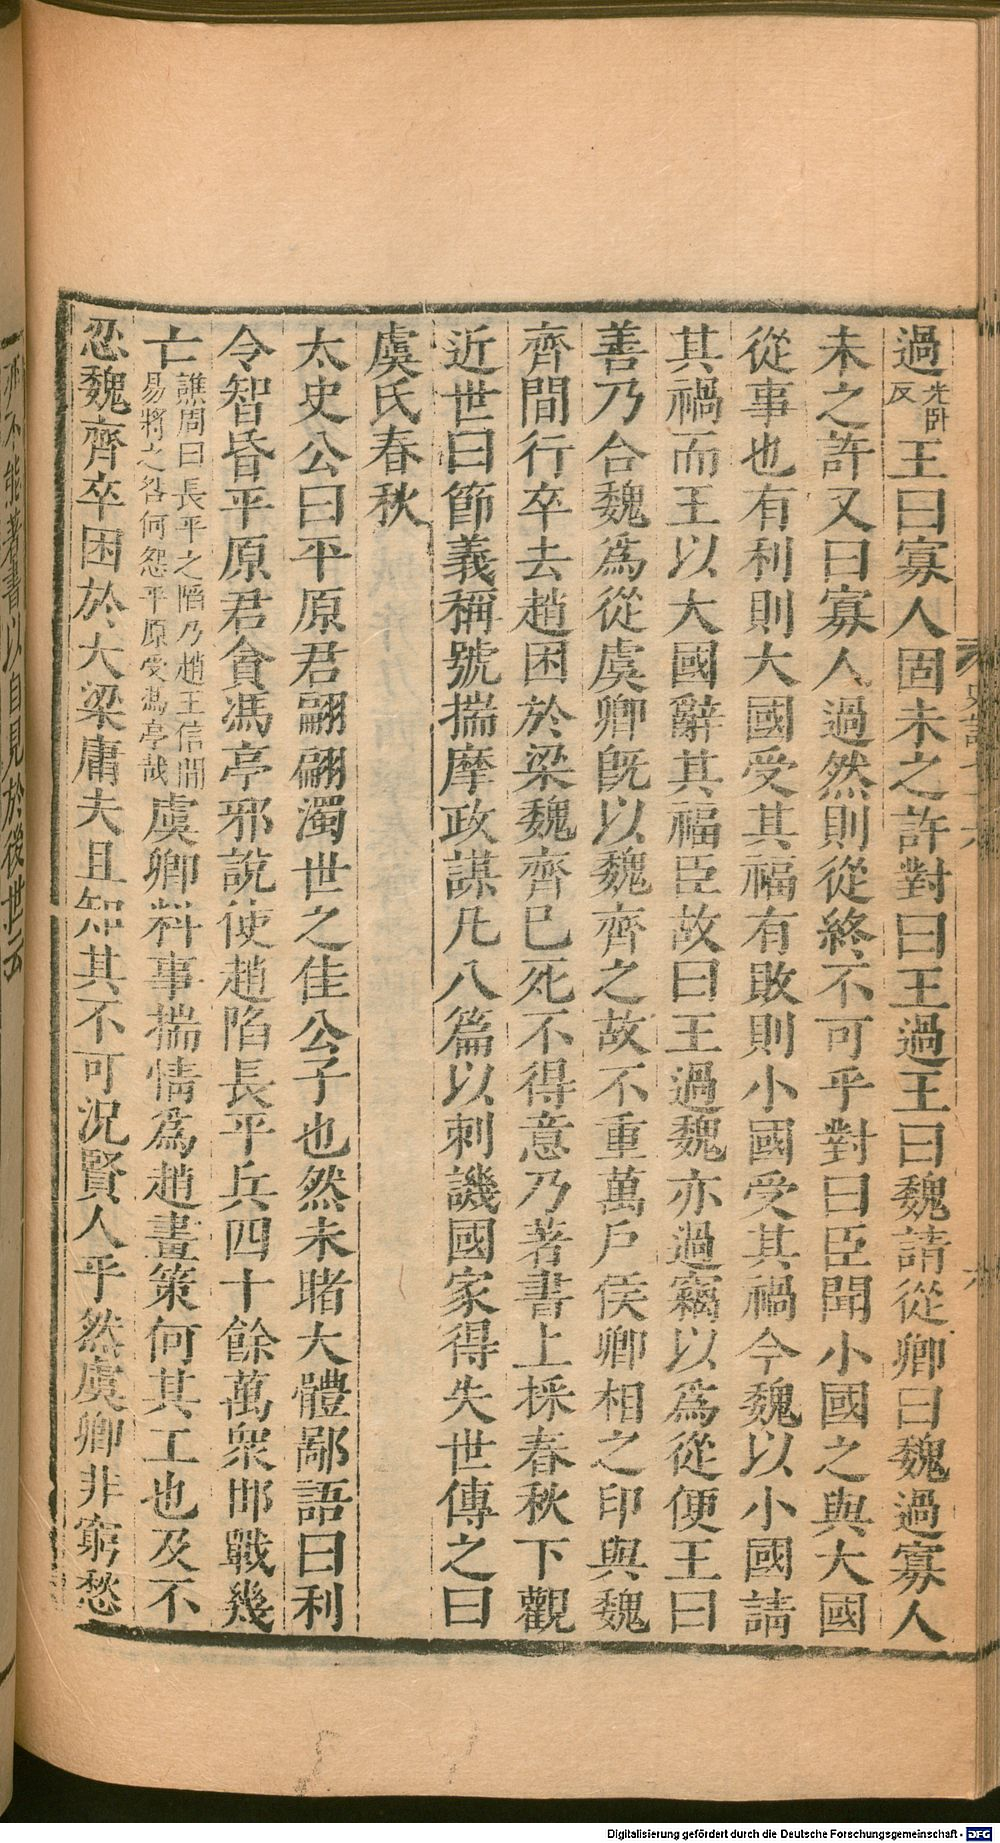 過光臥反王曰寡人固未之許對曰王過王曰魏請從卿曰魏過寡人
未之許又曰寡人過然則從終不可乎對曰臣聞小國之與大國
從事也有利則大國受其福有敗則小國受其禍今魏以小國請
其禍而王以大國辭其福臣故曰王過魏亦過竊以爲從便王曰
善乃合魏爲從虞卿旣以魏齊之故不重萬戶侯卿相之印與魏
齊間行卒去趙困於梁魏齊已死不得意乃著書上採春秋下觀
近世曰節義稱號揣摩政謀凡八篇以刺譏國家得失世傳之曰
虞氏春秋
太史公曰平原君翩翩濁世之佳公子也然未睹大體鄙語曰利
令智昏平原君貪馮亭邪說使趙陷長平兵四十餘萬衆邯戰幾
亡譙周曰長平之陷乃趙王信間易將之咎何怨平原受馮亭哉虞卿料事揣情爲趙畫策何其工也及不
忍魏齊卒困於大梁庸夫且知其不可況賢人乎然虞卿非窮愁
亦不能著書以自見於後世云
Digitalisierung gefördert durch die Deutsche Forschungsgemeinschaft - DFG